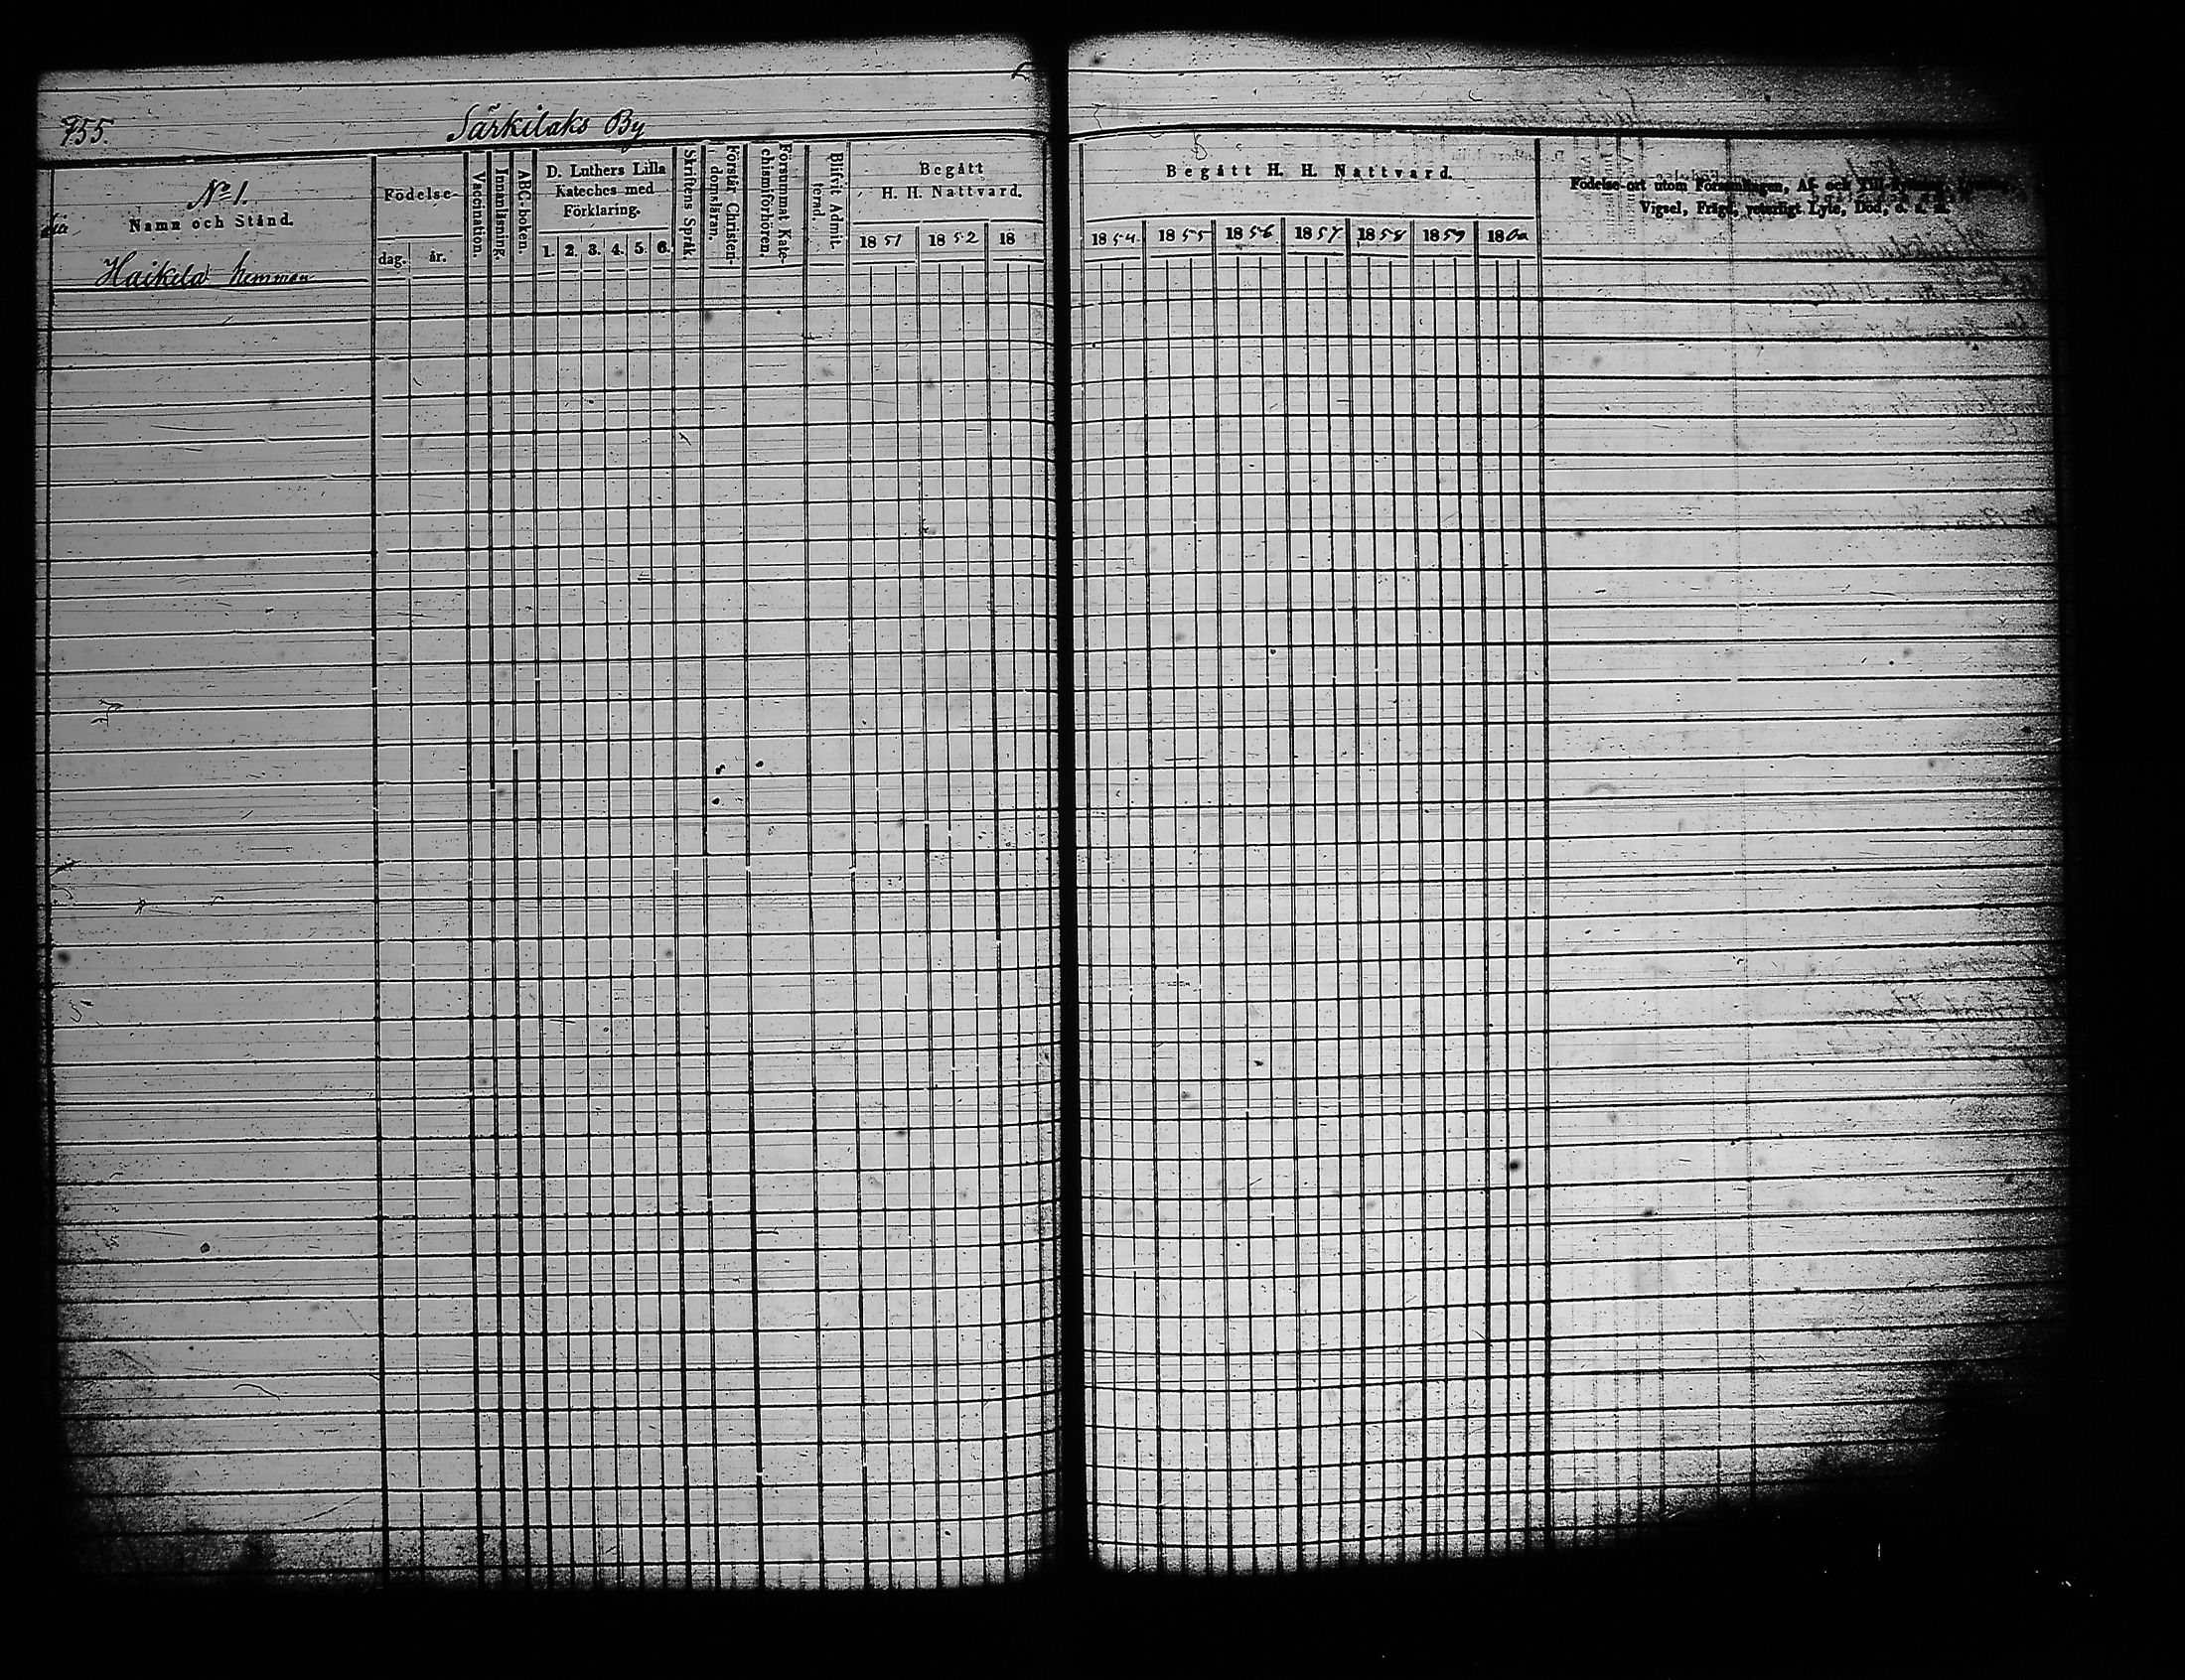 755.
Särkilaks By
No 1.
Namn och Stånd.
Födelse-
dag. år.
Vaccination.
Innanläsning.
ABC-boken.
D. Luthers Lilla
Kateches med
Förklaring.
1. 2. 3. 4. 5. 6.
Skriftens Språk.
Förstår Christen-
domsläran.
Försummat Kate-
chismiförhören.
Blifvit Admit-
terad.
Begått
H. H. Nattvard.
1851 1852 18
Haikila hemman
Begått H. H. Nattvard.
1854. 1855 1856 1857 1858 1859 1860
Födelse-ort utom Församlingen, Af- och Till-
Vigsel, Frägd, veterligt Lyte, Död, o. s. v.